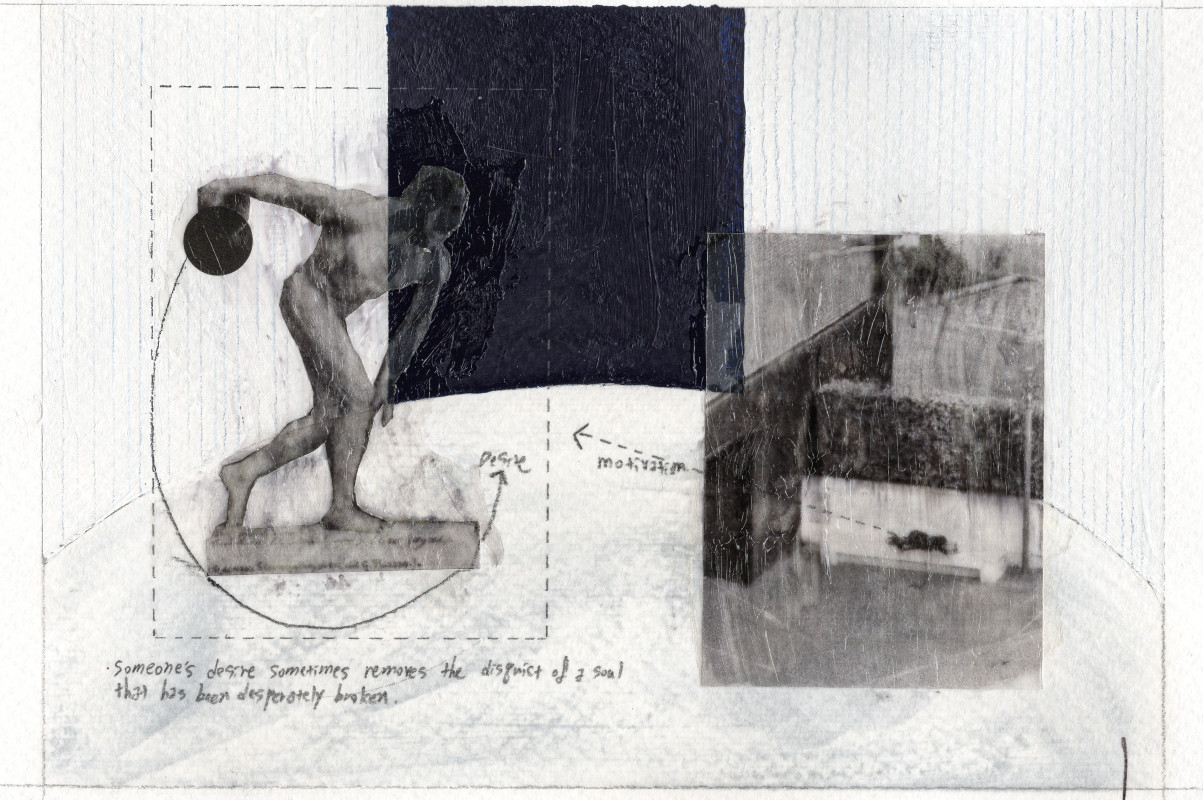 Desire
motivation
·Someone's desire sometimes removes the disquiet of a soul
that has been desperately broken.